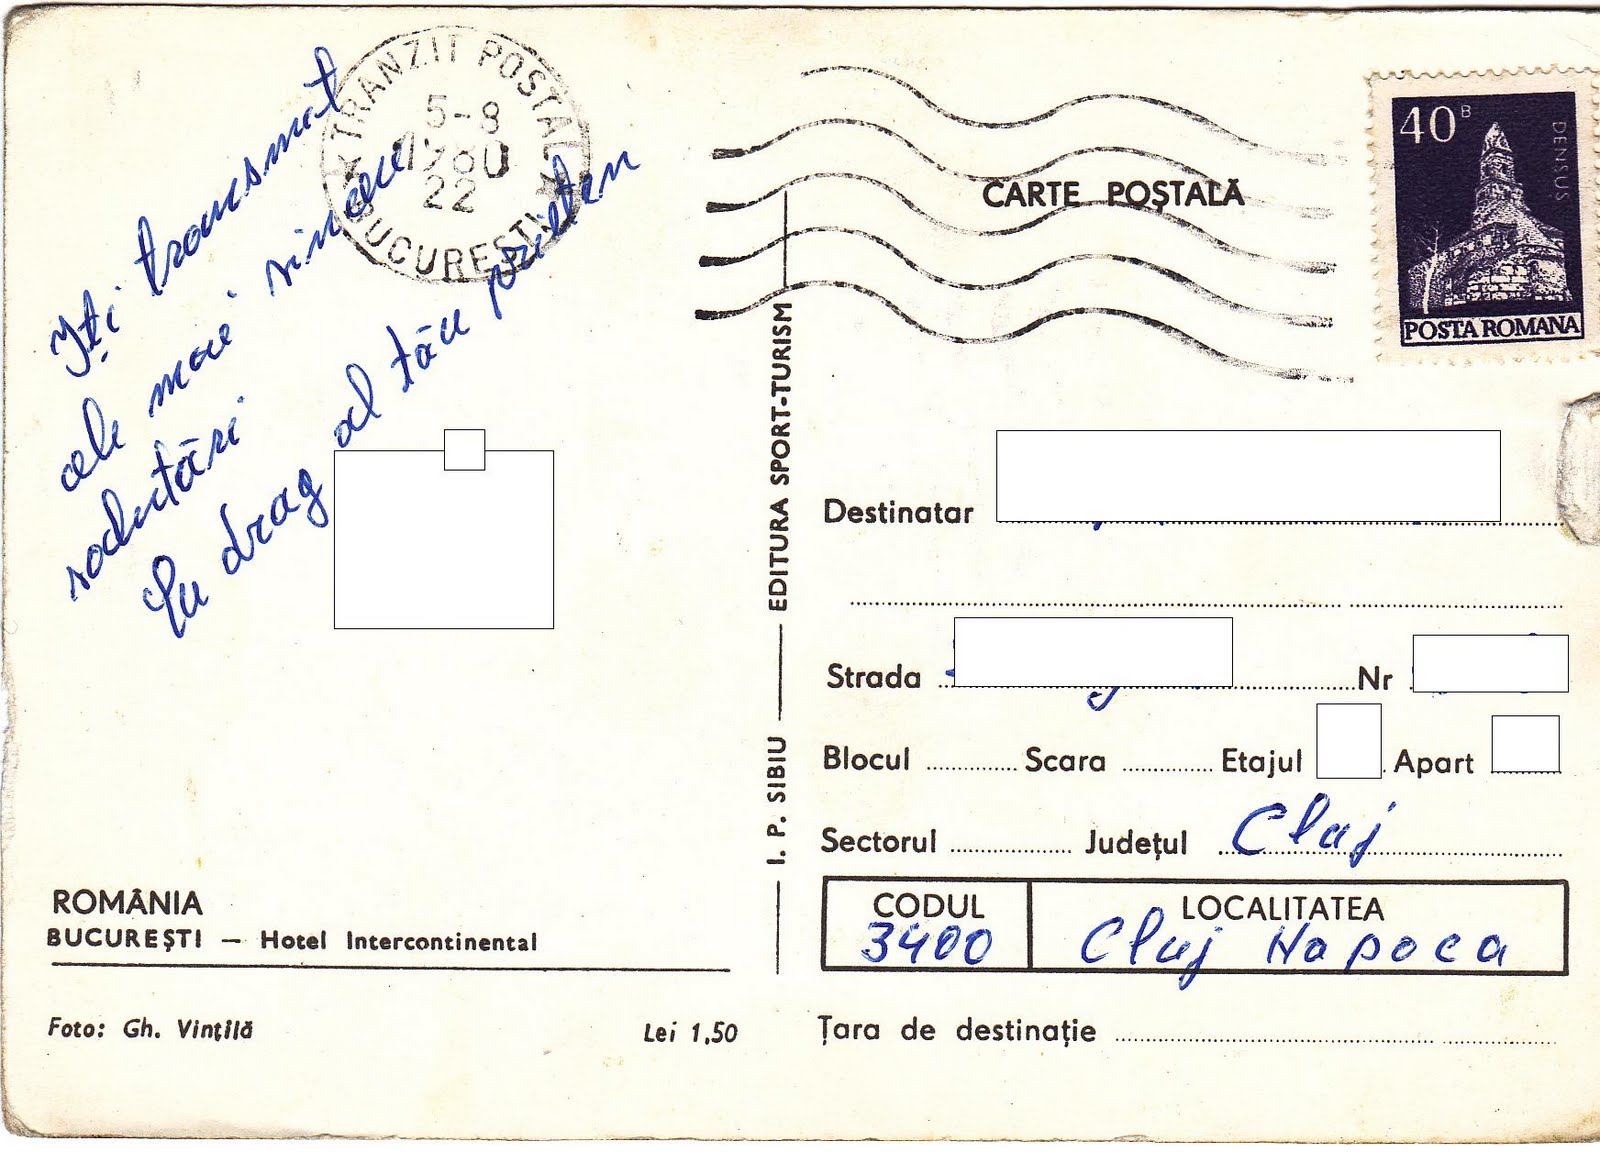 Iți transmit
cele mai sincere
salutări
Cu drag al tău prieten
TRANZIT POSTAL
5-8
1980
22
BUCUREȘTI
CARTE POȘTALĂ
40 B
DENSUS
POSTA ROMANA
I. P. SIBIU — EDITURA SPORT-TURISM
Destinatar
Strada Nr
Blocul Scara Etajul Apart
Sectorul Județul Cluj
CODUL LOCALITATEA
3400 Cluj Napoca
Țara de destinație
ROMÂNIA
BUCUREȘTI — Hotel Intercontinental
Foto: Gh. Vințilă Lei 1,50